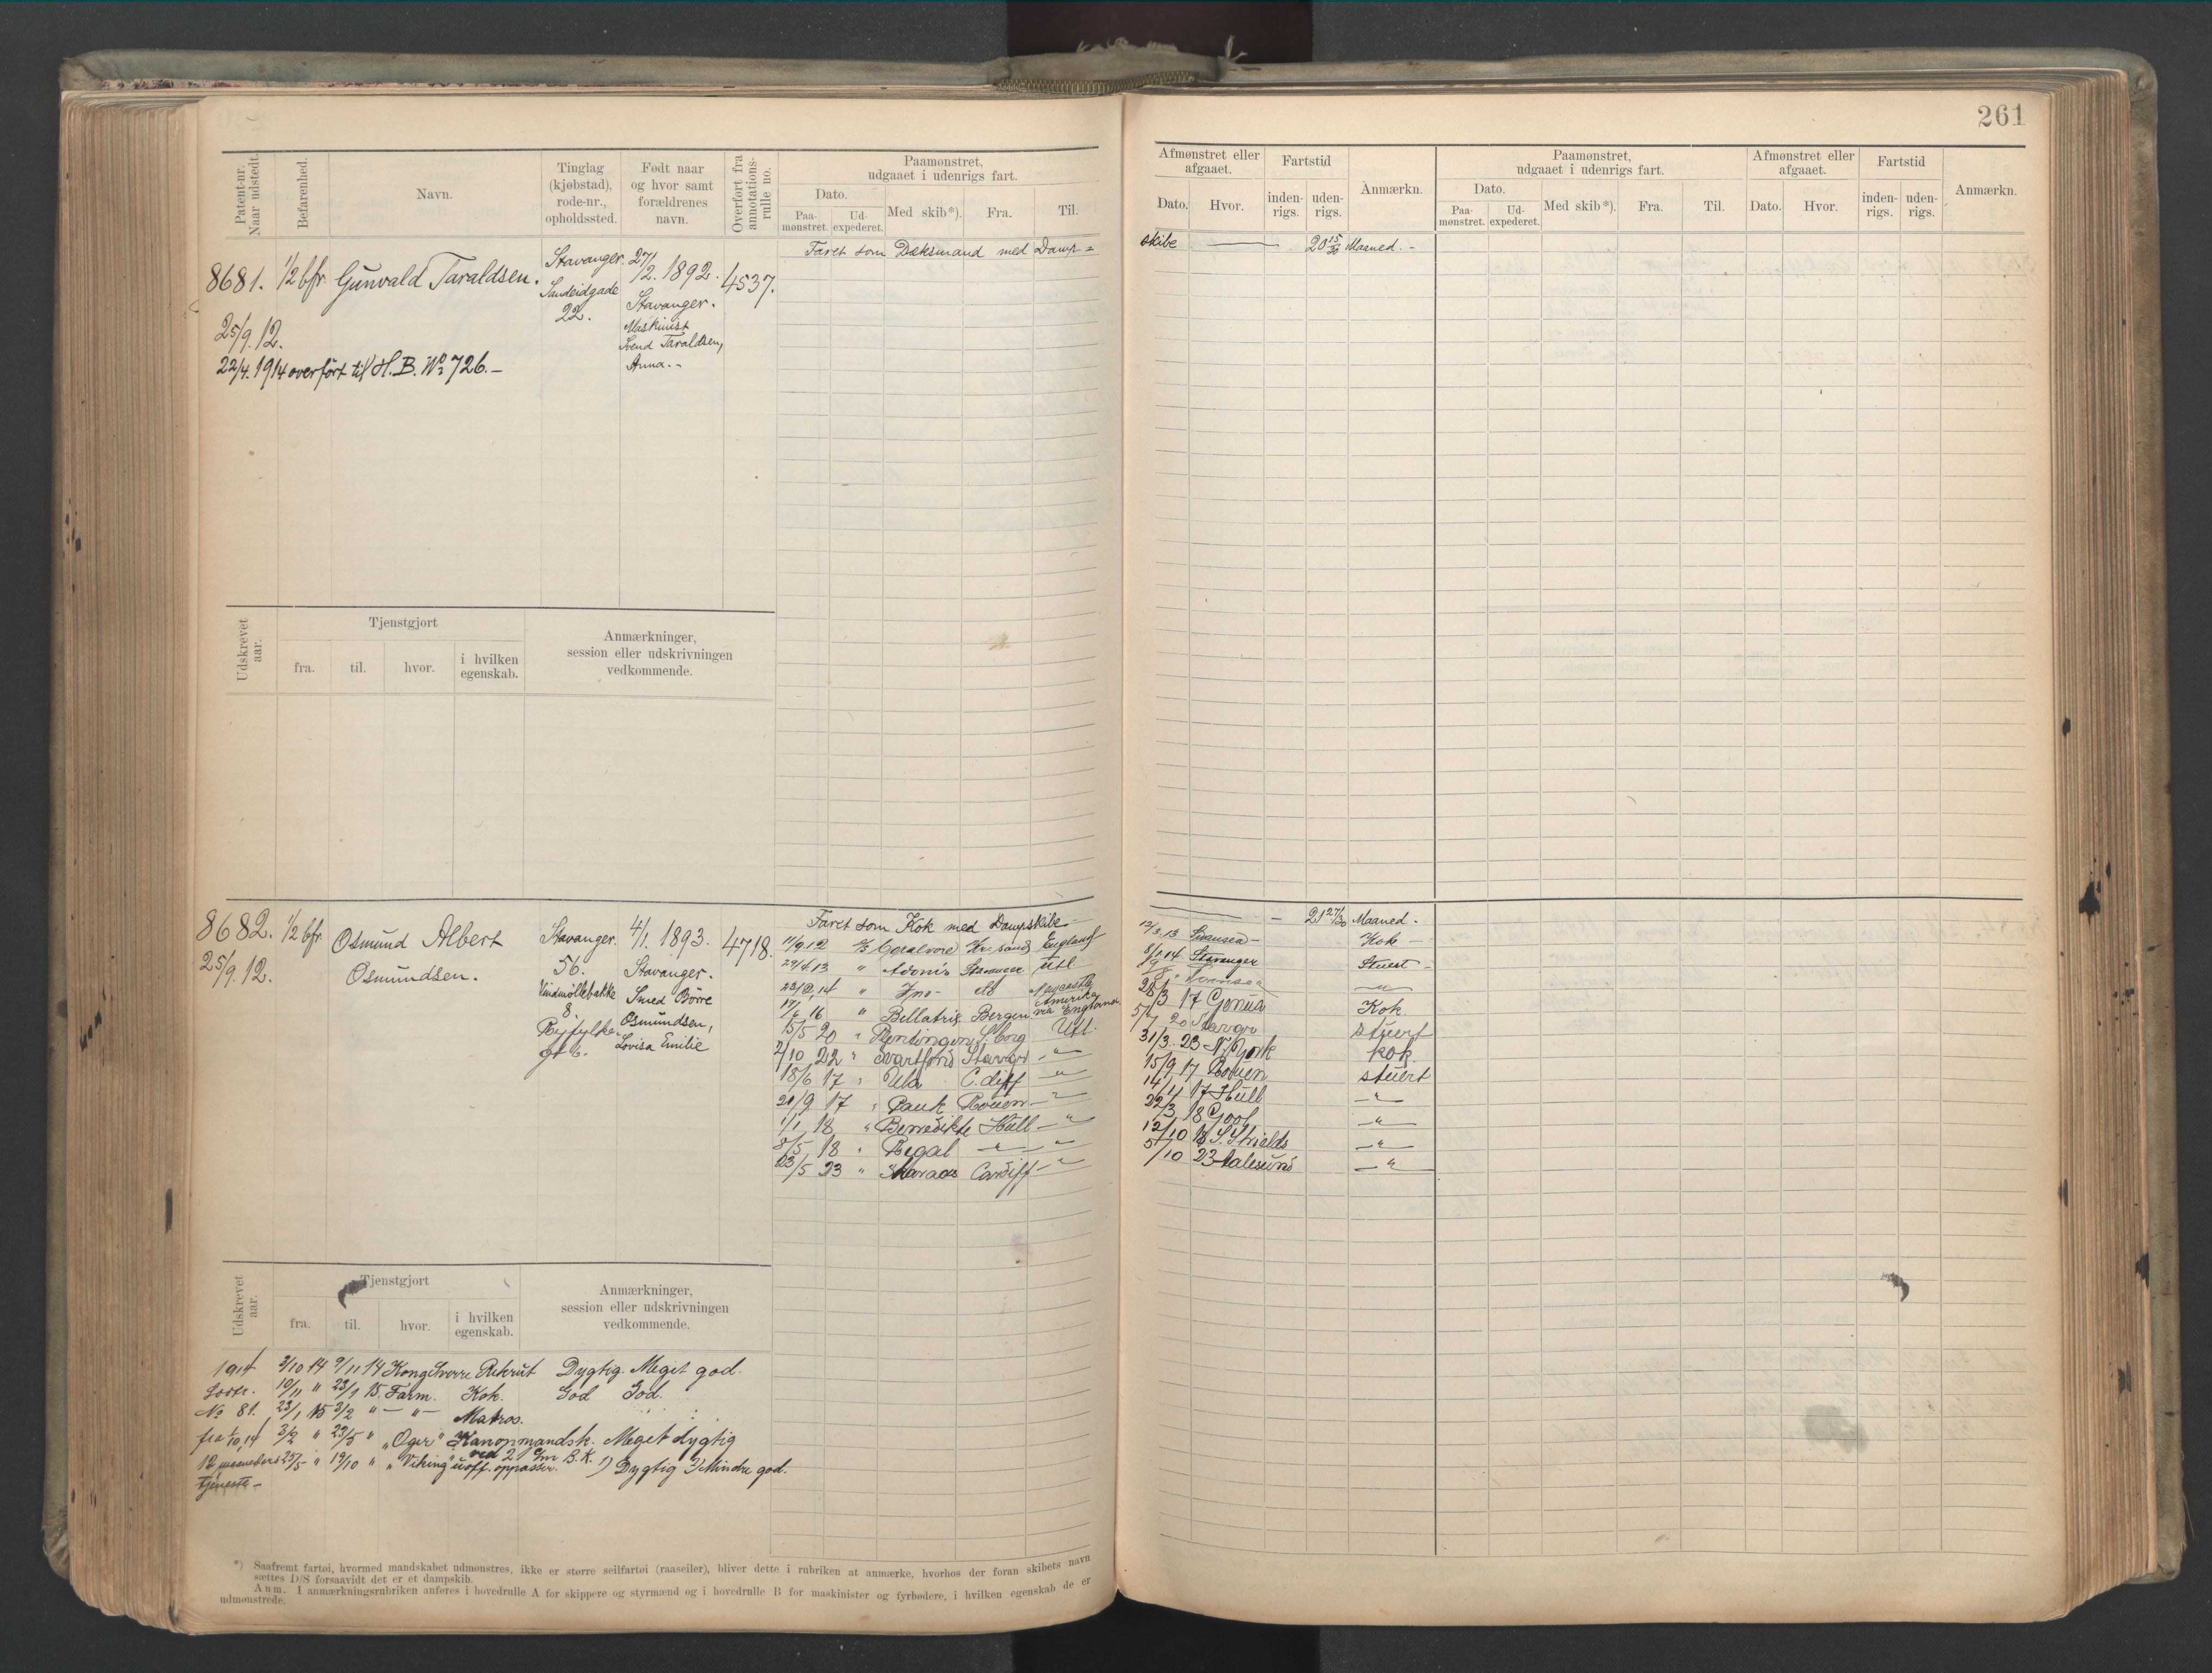 261
Patent-nr. Naar udstedt.
Befarenhed.
Navn.
Tinglag (kjøbstad), rode-nr., opholdssted.
Født naar og hvor samt forældrenes navn.
Overført fra annotations-rulle no.
Paamønstret, udgaaet i udenrigs fart.
Dato.
Paa-mønstret.
Ud-expederet.
Med skib*).
Fra.
Til.
Afmønstret eller afgaaet.
Fartstid
Dato.
Hvor.
inden-rigs.
uden-rigs.
Anmærkn.
Paamønstret, udgaaet i udenrigs fart.
Dato.
Paa-mønstret.
Ud-expederet.
Med skib*).
Fra.
Til.
Afmønstret eller afgaaet.
Fartstid
Dato.
Hvor.
inden-rigs.
uden-rigs.
Anmærkn.
8681. 1/2 bfr. Gunvald Taraldsen.
25/9.12.
22/4.1914 overført til H.B. No 726.-
Stavanger.
Sandeidgade
22.
27/2. 1892.
Stavanger.
Maskinist
Svend Taraldsen,
Anna.-
4537.
Faret som Dæksmand med Damp=
skibe — 20 15/30 Maaned.-
Udskrevet aar.
Tjenstgjort
fra.
til.
hvor.
i hvilken egenskab.
Anmærkninger, session eller udskrivningen vedkommende.
8682. 1/2 bfr. Osmund Albert
25/9.12. Osmundsen.
Stavanger.
56.
Vindmøllebakke
8.
Ryfylke
gt 6.
4/1. 1893.
Stavanger.
Smed Børre
Osmundsen,
Lovisa Emilie
4718.
Faret som Kok med Dampskibe — 21 27/30 Maaned.
11/9.12 D/S Coralvore Kr.sand England 13/3.13 Swansea - Kok -
29/4.13 " Adonis Stavanger Utl. Stavanger Stuert -
" Newcastle
17/6 16 " Bellatrix Bergen Amerika via England 3 17 Genua Kok
15/5 20 " S.borg Utl. 20 Stavgr stuert
2/10 22 " Svartfond Stavgr -"- 31/3 23 N.York kok.
18/6 17 " Ula C.diff -"- 15/9 17 Rouen stuert
20/9 17 " Pauk Rouen -"- 14/11 17 Hull -"-
1/1 18 " Benedikte Hull -"- 22/3 18 Gool -"-
8/5 18 " Regal -"- -"- 12/10 18 S.Shields -"-
23/5 23 " Cardiff -"- 5/10 23 Aalesund -"-
Udskrevet aar.
Tjenstgjort
fra.
til.
hvor.
i hvilken egenskab.
Anmærkninger, session eller udskrivningen vedkommende.
1914 2/10 14 9/11 14 Kong Sverre Rekrut Dygtig. Meget god.
10/11 " 23/1 15. Farm. Kok. God God.
No 81. 23/1 15 3/2 " -"- Matros.
fra 2/10,14 3/2 " 23/5 " "Oger" Kanonmandsk. Meget dygtig
ved 2 c/m B.K.
12 maaneders 25/5 " 19/10 " "Viking" uoff. oppasser. 1) Dygtig 2) Mindre god.
tjeneste -
*) Saafremt fartøi, hvormed mandskabet udmønstres, ikke er større seilfartøi (raaseiler), bliver dette i rubriken at anmærke, hvorhos der foran skibets navn
sættes D/S forsaavidt det er et dampskib.
Anm. I anmærkningsrubriken anføres i hovedrulle A for skippere og styrmænd og i hovedrulle B for maskinister og fyrbødere, i hvilken egenskab de er
udmønstrede.